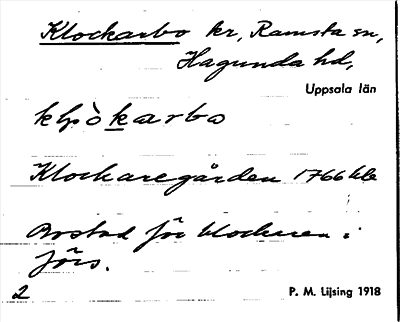 Klockarbo kr, Ramsta sn,
Hagunda hd,
Uppsala län
klò̀karbo
Klockaregården 1766 kle
Bostad för klockaren i
förs.
2
P. M. Lijsing 1918